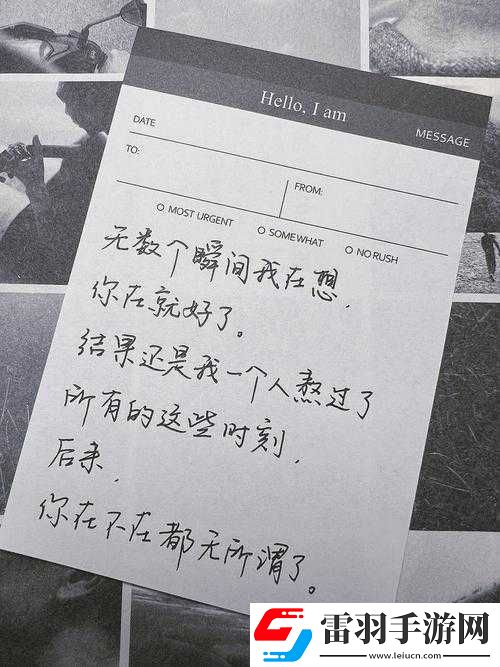 Hello, I am
MESSAGE
DATE
TO:
FROM:
MOST URGENT
SOMEWHAT
NO RUSH
无数个瞬间我在想，
你在就好了。
结果还是我一个人熬过了
所有的这些时刻，
后来，
你在不在都无所谓了。
雷羽手游网
www.leiucn.com